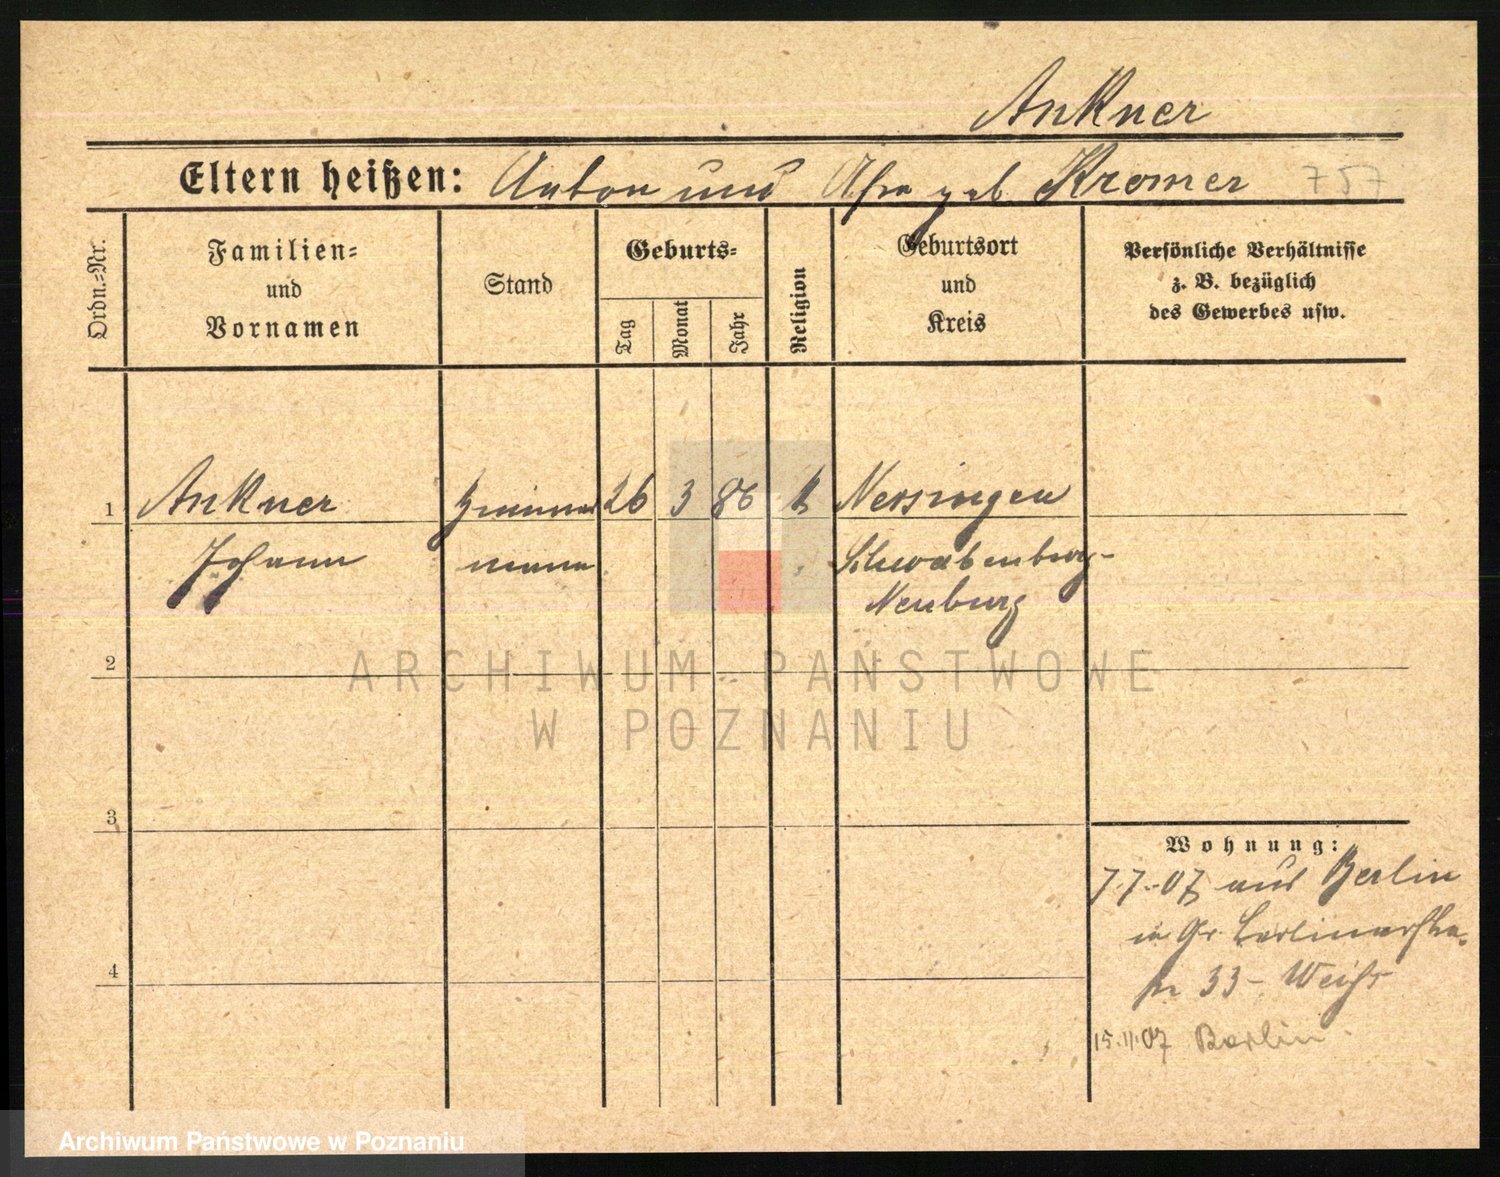 Ankner
Eltern heißen: Anton und Afra geb. Kromer 757
Ordn.-Nr.
Familien- und Vornamen
Stand
Geburts-
Tag
Monat
Jahr
Religion
Geburtsort und Kreis
Persönliche Verhältnisse
z. B. bezüglich
des Gewerbes usw.
1 Ankner 26 3 86 k Nersingen
Johann mann Schwabenburg-
Neuburg
2
ARCHIWUM PAŃSTWOWE
W POZNANIU
3
Wohnung:
7.7.07 aus Berlin
in Gr. Berlinerstr.
33 - Weiß
4
15.11.07 Berlin
Archiwum Państwowe w Poznaniu